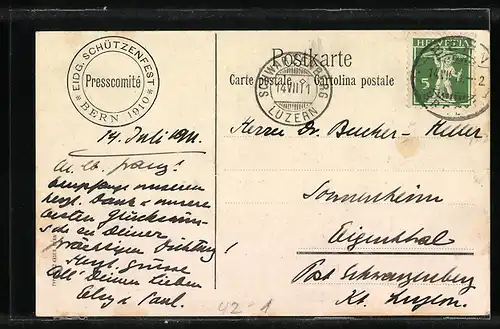 EIDG. SCHÜTZENFEST
Presscomité
* BERN 1910 *
Postkarte
Carte postale Cartolina postale
SCHWARZENBERG
14 VII 11
LUZERN
HELVETIA
5
14 Juli 1911.
M. lb. Franz!
Empfange unseren
herzl. Dank & unsere
besten Glückwün-
sche zu Deiner
prächtigen Dichtung!
Herzl. Grüsse
all' Deinen Lieben
& Paul.
Herrn Dr. Bucher-Heller
Sonnenheim
Eigenthal
Post Schwarzenberg
Kt. Luzern.